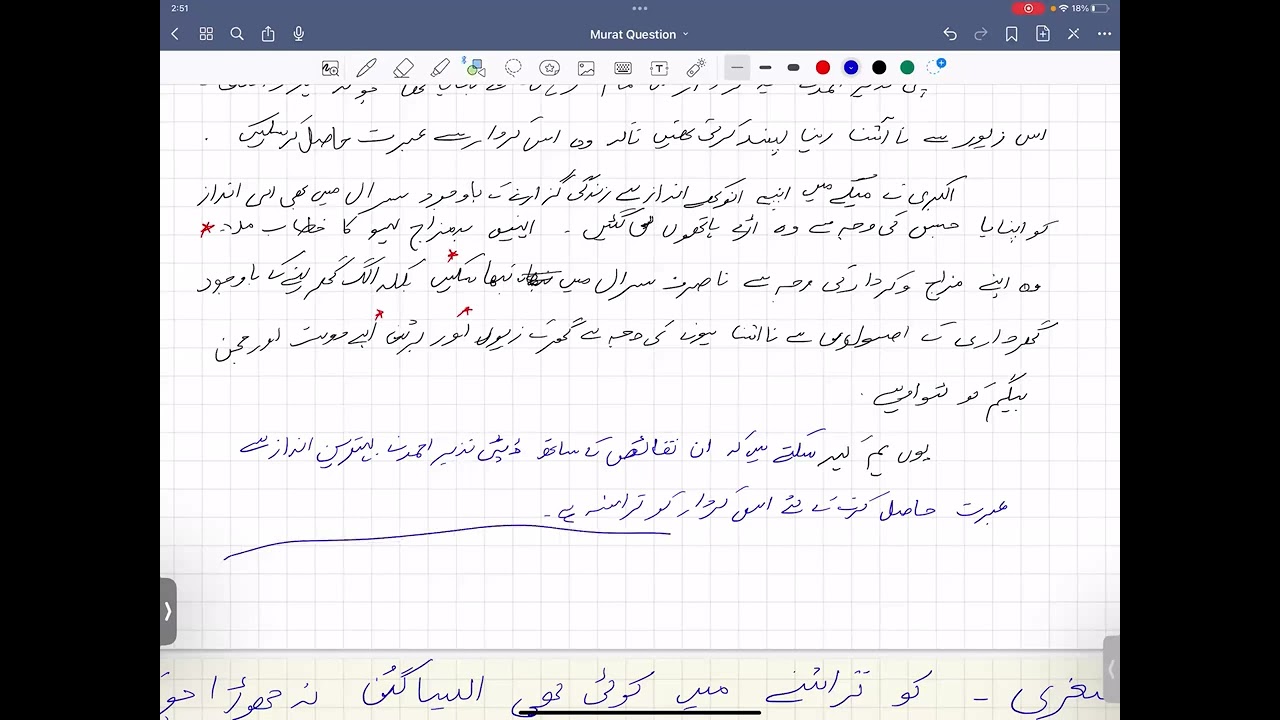 2:51
18%
Murat Question
اس زیور سے نا آشنا رہنا پسند کرتی تھیں تاکہ وہ اس کردار سے عبرت حاصل کر سکیں .
اکبری نے میکے میں اپنے انوکھے انداز سے زندگی گزارنے کے باوجود سسرال میں بھی اسی انداز
کو اپنایا جس کی وجہ سے وہ آڑے ہاتھوں لی گئیں ۔ انہیں بدمزاج بہو کا خطاب ملا۔
وہ اپنے مزاج و کردار کی وجہ سے نا صرف سسرال میں نبھا سکیں بلکہ الگ گھر لینے کے باوجود
گھرداری کے اصولوں سے نا آشنا ہونے کی وجہ سے گھر کے زیور اور برتن اپنے دوست اور حجن
بیگم کو لٹوا دیے .
یوں ہم کہہ سکتے ہیں کہ ان نقائص کے ساتھ ڈپٹی نذیر احمد نے بہترین انداز سے
عبرت حاصل کرنے کے لئے اس کردار کو تراشہ ہے ۔
صغری ۔ کو تراشنے میں کوئی بھی ایسا گُن نہ چھوڑا جو